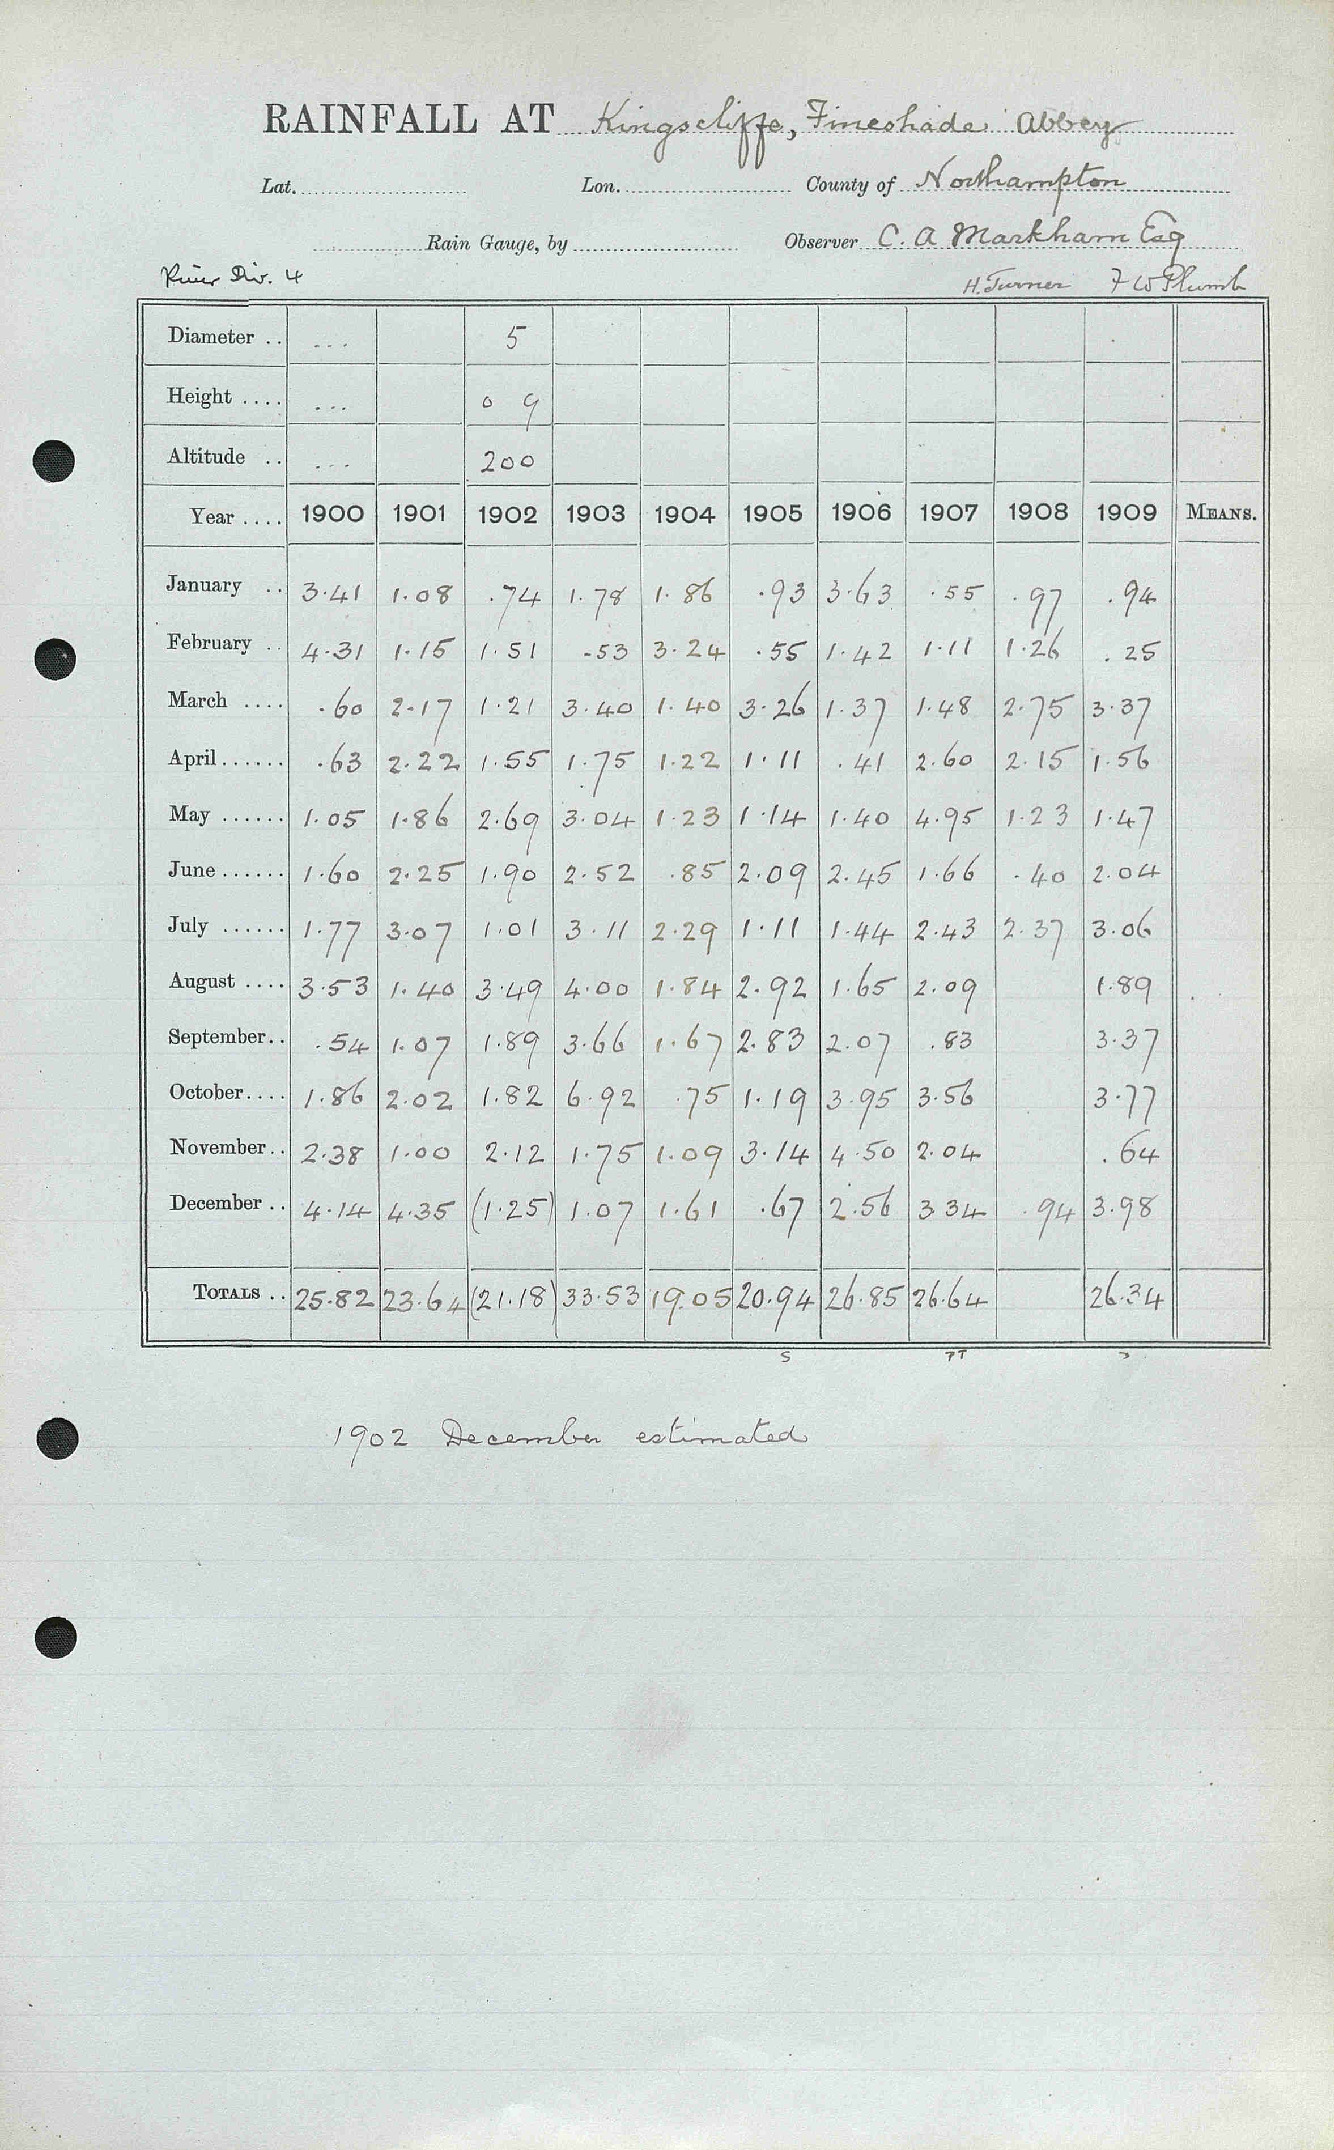 RAINFALL AT Kingscliffe, Fineshade Abbey
Lat. Lon. County of Northampton
Rain Gauge, by Observer C. A Markham Esq
River Div. 4 H. Turner F W Plumb
Diameter .. ... 5
Height .... ... 0 9
Altitude .. ... 200
Year .... 1900 1901 1902 1903 1904 1905 1906 1907 1908 1909 MEANS.
January .. 3.41 1.08 .74 1.78 1.86 .93 3.63 .55 .97 .94
February .. 4.31 1.15 1.51 .53 3.24 .55 1.42 1.11 1.26 .25
March .... .60 2.17 1.21 3.40 1.40 3.26 1.37 1.48 2.75 3.37
April ...... .63 2.22 1.55 1.75 1.22 1.11 .41 2.60 2.15 1.56
May ...... 1.05 1.86 2.69 3.04 1.23 1.14 1.40 4.95 1.23 1.47
June ...... 1.60 2.25 1.90 2.52 .85 2.09 2.45 1.66 .40 2.04
July ...... 1.77 3.07 1.01 3.11 2.29 1.11 1.44 2.43 2.37 3.06
August .... 3.53 1.40 3.49 4.00 1.84 2.92 1.65 2.09 1.89
September.. .54 1.07 1.89 3.66 1.67 2.83 2.07 .83 3.37
October.... 1.86 2.02 1.82 6.92 .75 1.19 3.95 3.56 3.77
November.. 2.38 1.00 2.12 1.75 1.09 3.14 4.50 2.04 .64
December .. 4.14 4.35 (1.25) 1.07 1.61 .67 2.56 3 34 .94 3.98
TOTALS .. 25.82 23.64 (21.18) 33.53 19.05 20.94 26.85 26.64 26.34
S
1902 December estimated